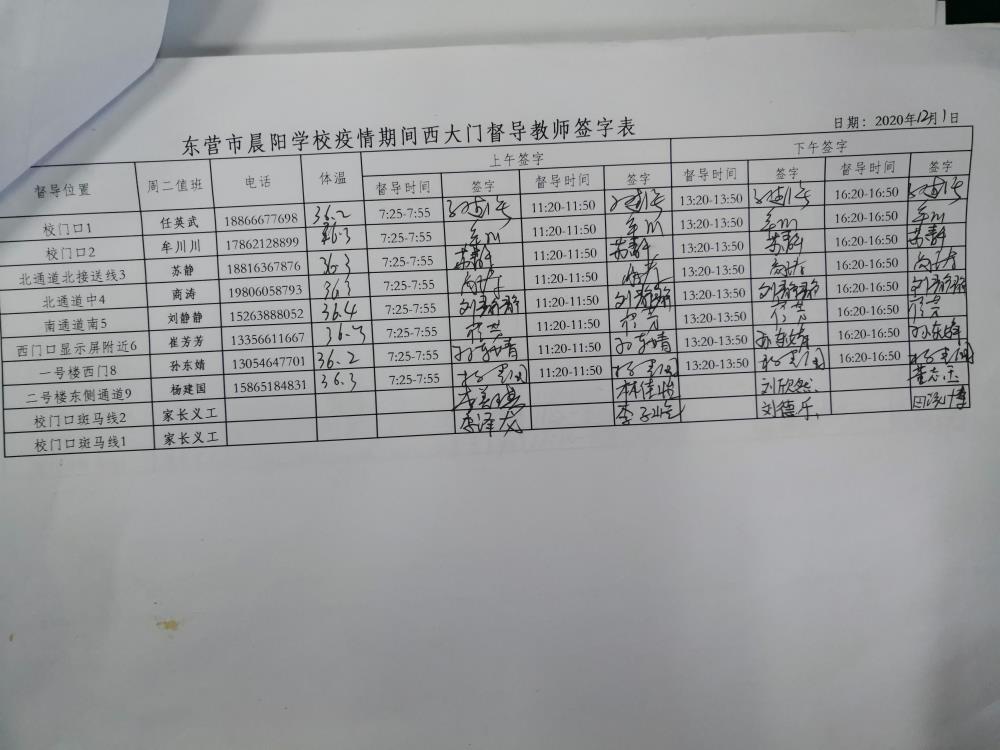 东营市晨阳学校疫情期间西大门督导教师签字表
日期：2020年12月1日
督导位置 周二值班 电话 体温 上午签字 下午签字
督导时间 签字 督导时间 签字 督导时间 签字 督导时间 签字
校门口1 任英武 18866677698 36.2 7:25-7:55 11:20-11:50 13:20-13:50 16:20-16:50
校门口2 牟川川 17862128899 36.3 7:25-7:55 11:20-11:50 13:20-13:50 16:20-16:50
北通道北接送线3 苏静 18816367876 36.3 7:25-7:55 苏静 11:20-11:50 苏静 13:20-13:50 苏静 16:20-16:50 苏静
北通道中4 商涛 19806058793 36.3 7:25-7:55 商涛 11:20-11:50 商涛 13:20-13:50 商涛 16:20-16:50 商涛
南通道南5 刘静静 15263888052 36.4 7:25-7:55 刘静静 11:20-11:50 刘静静 13:20-13:50 刘静静 16:20-16:50 刘静静
西门口显示屏附近6 崔芳芳 13356611667 36.3 7:25-7:55 11:20-11:50 13:20-13:50 16:20-16:50
一号楼西门8 孙东婧 13054647701 36.2 7:25-7:55 孙东婧 11:20-11:50 孙东婧 13:20-13:50 孙东婧 16:20-16:50 孙东婧
二号楼东侧通道9 杨建国 15865184831 36.3 7:25-7:55 杨建国 11:20-11:50 杨建国 13:20-13:50 杨建国 16:20-16:50 杨建国
校门口斑马线2 家长义工 林佳怡 刘欣然 董志玉
校门口斑马线1 家长义工 李泽龙 刘德乐